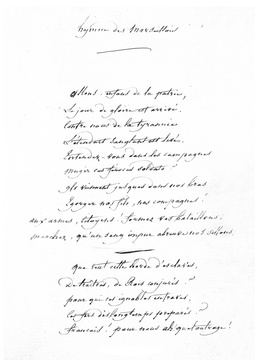 hymne des Marseillois
Allons enfans de la patrie,
Le jour de gloire est arrivé.
Contre nous de la tyrannie
L'étendart sanglant est levé.
Entendez-vous dans les campagnes
Mugir ces féroces soldats ?
ils viennent jusques dans nos bras
Egorger nos fils, nos compagnes !
aux armes, citoyens ! formez vos bataillons.
marchez, qu'un sang impur abreuve nos sillons.
que veut cette horde d'esclaves,
De traîtres, de Rois conjurés ?
pour qui ces ignobles entraves,
Ces fers dès longtemps préparés ?
français ! pour nous ah quel outrage !